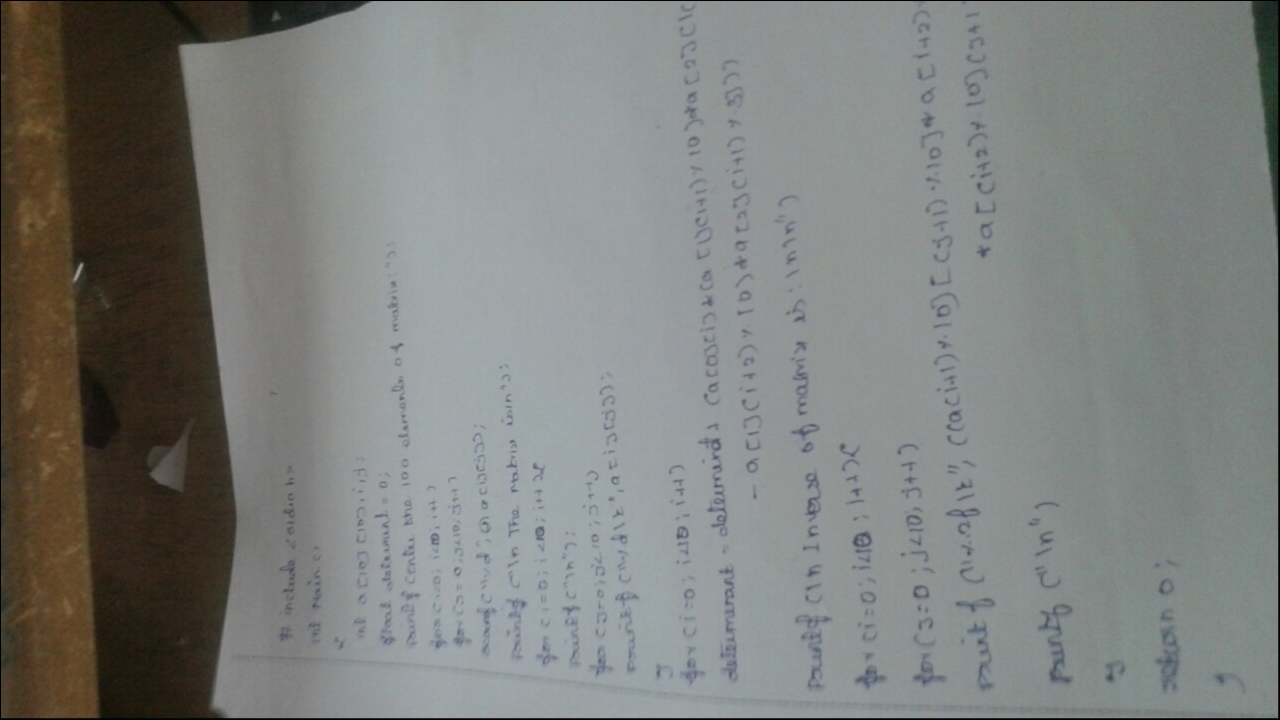 # include <stdio.h>
int main()
{
int a[10][10], i, j;
float determinent = 0;
printf("enter the 100 elements of matrix:");
for(i=0; i<10; i++)
for(j=0; j<10; j++)
scanf("%d", &a[i][j]);
printf("\n The matrix is\n");
for(i=0; i<10; i++){
printf("\n");
for(j=0; j<10; j++)
printf("%d\t", a[i][j]);
}
for(i=0; i<10; i++)
determinant = determinant + (a[0][i]*(a[1][(i+1)%10]*a[2][(
- a[1][(i+2)%10]*a[2][(i+1)%3]))
printf("\n Inverse of matrix is: \n\n")
for(i=0; i<10; i++){
for(j=0; j<10; j++)
printf("%.2f\t", ((a[(i+1)%10][(j+1)%10]*a[(i+2)%
*a[(i+2)%10][(j+1
printf("\n")
}
return 0;
}